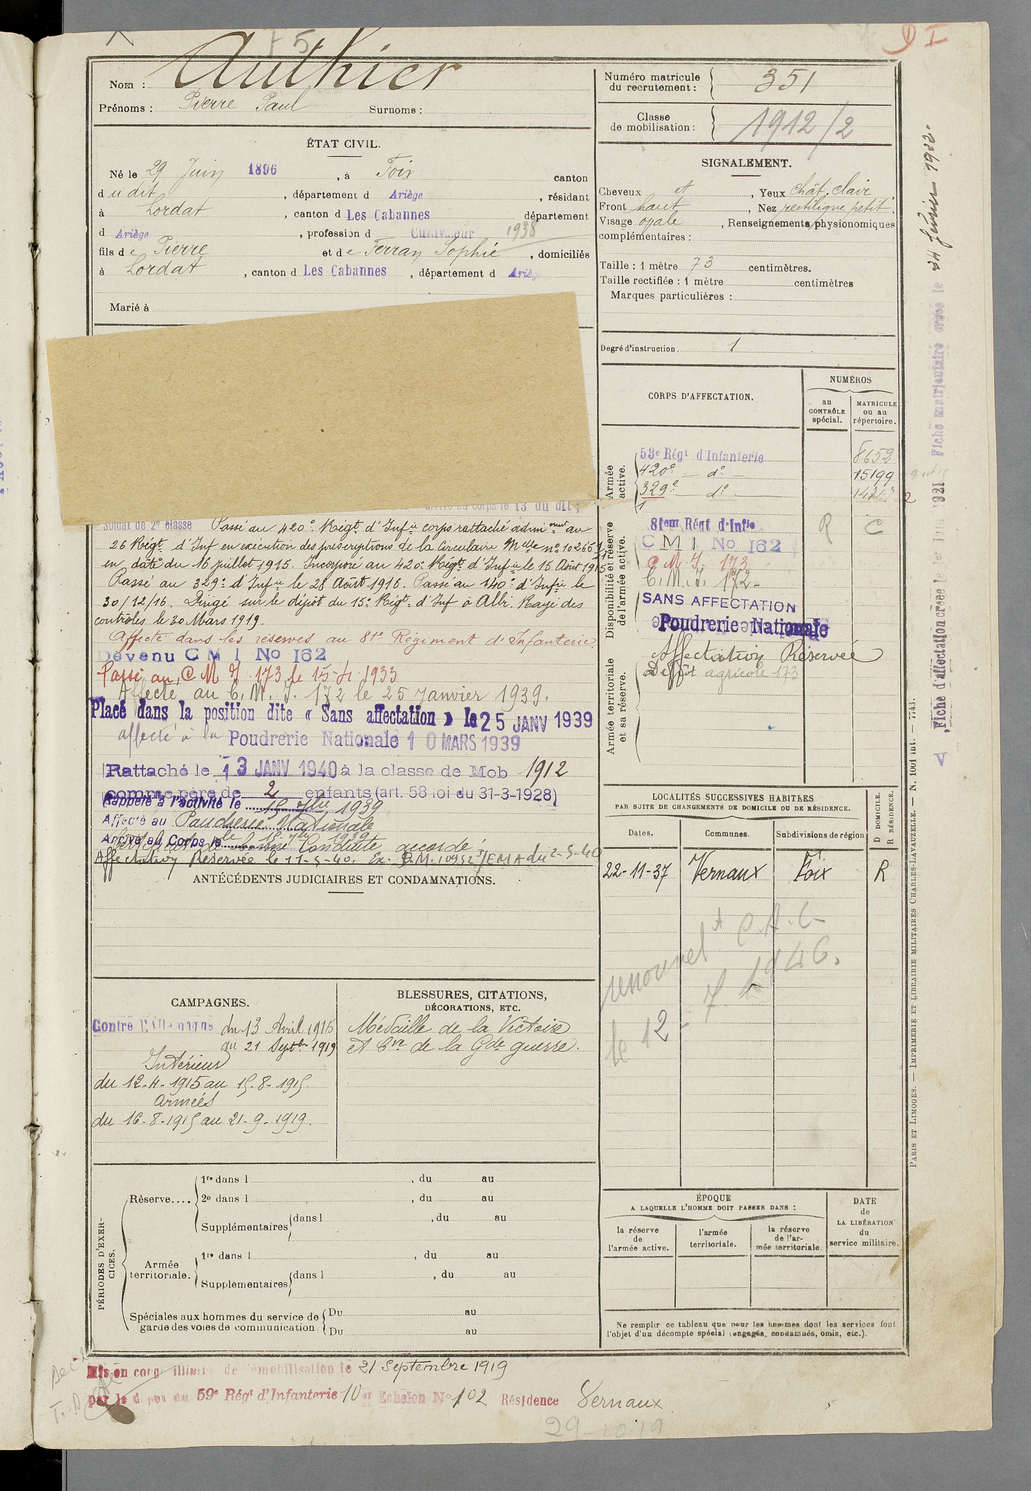 F5
Nom : Authier
Prénoms : Pierre Paul Surnoms :
ÉTAT CIVIL.
Né le 29 Juin 1896, à Foix canton
dudit, département d Ariège, résidant
à Lordat, canton d Les Cabannes département
d Ariège, profession d Cultivateur 1938
fils de Pierre et de Ferran Sophie, domiciliés
à Lordat, canton d Les Cabannes, département d Ariège
Marié à
Numéro matricule du recrutement : 351
Classe de mobilisation : 1912/2
SIGNALEMENT.
Cheveux et, Yeux chât. clair
Front haut, Nez rectiligne petit.
Visage ovale, Renseignements physionomiques
complémentaires :
Taille : 1 mètre 73 centimètres.
Taille rectifiée : 1 mètre centimètres
Marques particulières :
Degré d'instruction. 1
CORPS D'AFFECTATION.
NUMÉROS
au CONTRÔLE spécial.
MATRICULE ou au répertoire.
Armée active.
53e Régt d'Infanterie 8653
420e do 15199
329e do
Disponibilité et réserve de l'armée active.
81em Régt d'Infie R C
C M I No 162
C M I. 173
C. M. I. 172
SANS AFFECTATION
Armée territoriale et sa réserve.
Poudrerie Nationale
Affectation Réservée
Dépôt agricole 173
le 13 du dit;
Soldat de 2e classe Passé au 420e Régt d'Infie corps rattaché admi au
26 Régt d'Inf en exécution des prescriptions de la Circulaire Melle no 10265
en date du 16 juillet 1915. Incorporé au 420e Régt d'Infie le 15 Août 1915
Passé au 329e d'Infie le 28 Août 1916. Passé au 140e d'Infie le
30/12/16. Dirigé sur le dépôt du 15e Régt d'Inf à Albi. Rayé des
contrôles le 20 Mars 1919.
Affecté dans les réserves au 81e Régiment d'Infanterie
Devenu C M I No 162
Passé au C M I 173 le 15-4 1933
Affecté au C. M. I. 172 le 25 Janvier 1939.
Placé dans la position dite « Sans affectation » le 25 JANV 1939
affecté à la Poudrerie Nationale 10 MARS 1939
Rattaché le 13 JANV 1940 à la classe de Mob 1912
comme père de 2 enfants (art. 58 loi du 31-3-1928)
Rappelé à l'activité le 1939
Affecté au Poudrerie Nationale
Arrivé au Corps le
Conduite accordé
Affectation Réservée le 11-5-40. /EMA du 2-5-40
ANTÉCÉDENTS JUDICIAIRES ET CONDAMNATIONS.
LOCALITÉS SUCCESSIVES HABITÉES
PAR SUITE DE CHANGEMENTS DE DOMICILE OU DE RÉSIDENCE.
Dates. Communes. Subdivisions de région D DOMICILE. R RÉSIDENCE.
22-11-37 Vernaux Foix R
le 12 - 7 1946.
CAMPAGNES.
Contre l'Allemagne du 13 Avril 1915
au 21 Septbre 1919
Intérieur
du 12-4-1915 au 15-8-1915
Armées
du 16-8-1915 au 21-9-1919.
BLESSURES, CITATIONS,
DÉCORATIONS, ETC.
Médaille de la Victoire
et Cve de la Gde guerre.
PÉRIODES D'EXERCICES.
Réserve.... 1re dans l , du au
2e dans l , du au
Supplémentaires dans l , du au
Armée territoriale. 1re dans l , du au
Supplémentaires dans l , du au
Spéciales aux hommes du service de garde des voies de communication. Du au
Du au
ÉPOQUE
A LAQUELLE L'HOMME DOIT PASSER DANS :
la réserve de l'armée active.
l'armée territoriale.
la réserve de l'armée territoriale.
DATE de LA LIBÉRATION du service militaire.
Ne remplir ce tableau que pour les hommes dont les services font
l'objet d'un décompte spécial (engagés, condamnés, omis, etc.).
Mis en congé illimité de démobilisation le 21 Septembre 1919
par le dépôt du 59e Régt d'Infanterie 10e Echelon No 102 Résidence Vernaux
29-10-19
PARIS ET LIMOGES. — IMPRIMERIE ET LIBRAIRIE MILITAIRES CHARLES-LAVAUZELLE. — N. 1001 int. — 7743.
Fiche d'affectation créée le 1921 Fiche matriculaire créée le 24 février 1932.